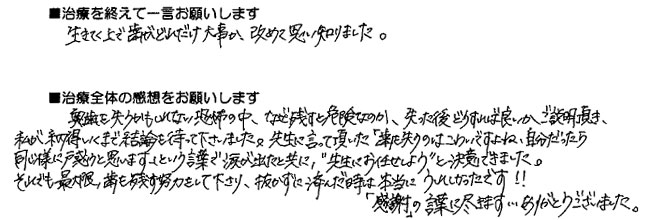 ■治療を終えて一言お願いします
生きてく上で歯がどれだけ大事か、改めて思い知りました。
■治療全体の感想をお願いします
奥歯を失うかもしれない恐怖の中、なぜ残すと危険なのか、失った後どうすれば良いか、ご説明頂き、
私が納得いくまで結論を待って下さいました。先生に言って頂いた「歯を失うのはこわいですよね、自分だったら
同じ様に戸惑うと思います」という言葉で涙が出たと共に、"先生にお任せしよう"と決意できました。
それでも最大限、歯を残す努力をして下さり、抜かずに済んだ時は本当にうれしかったです!!
「感謝」の言葉に尽きます…ありがとうございました。